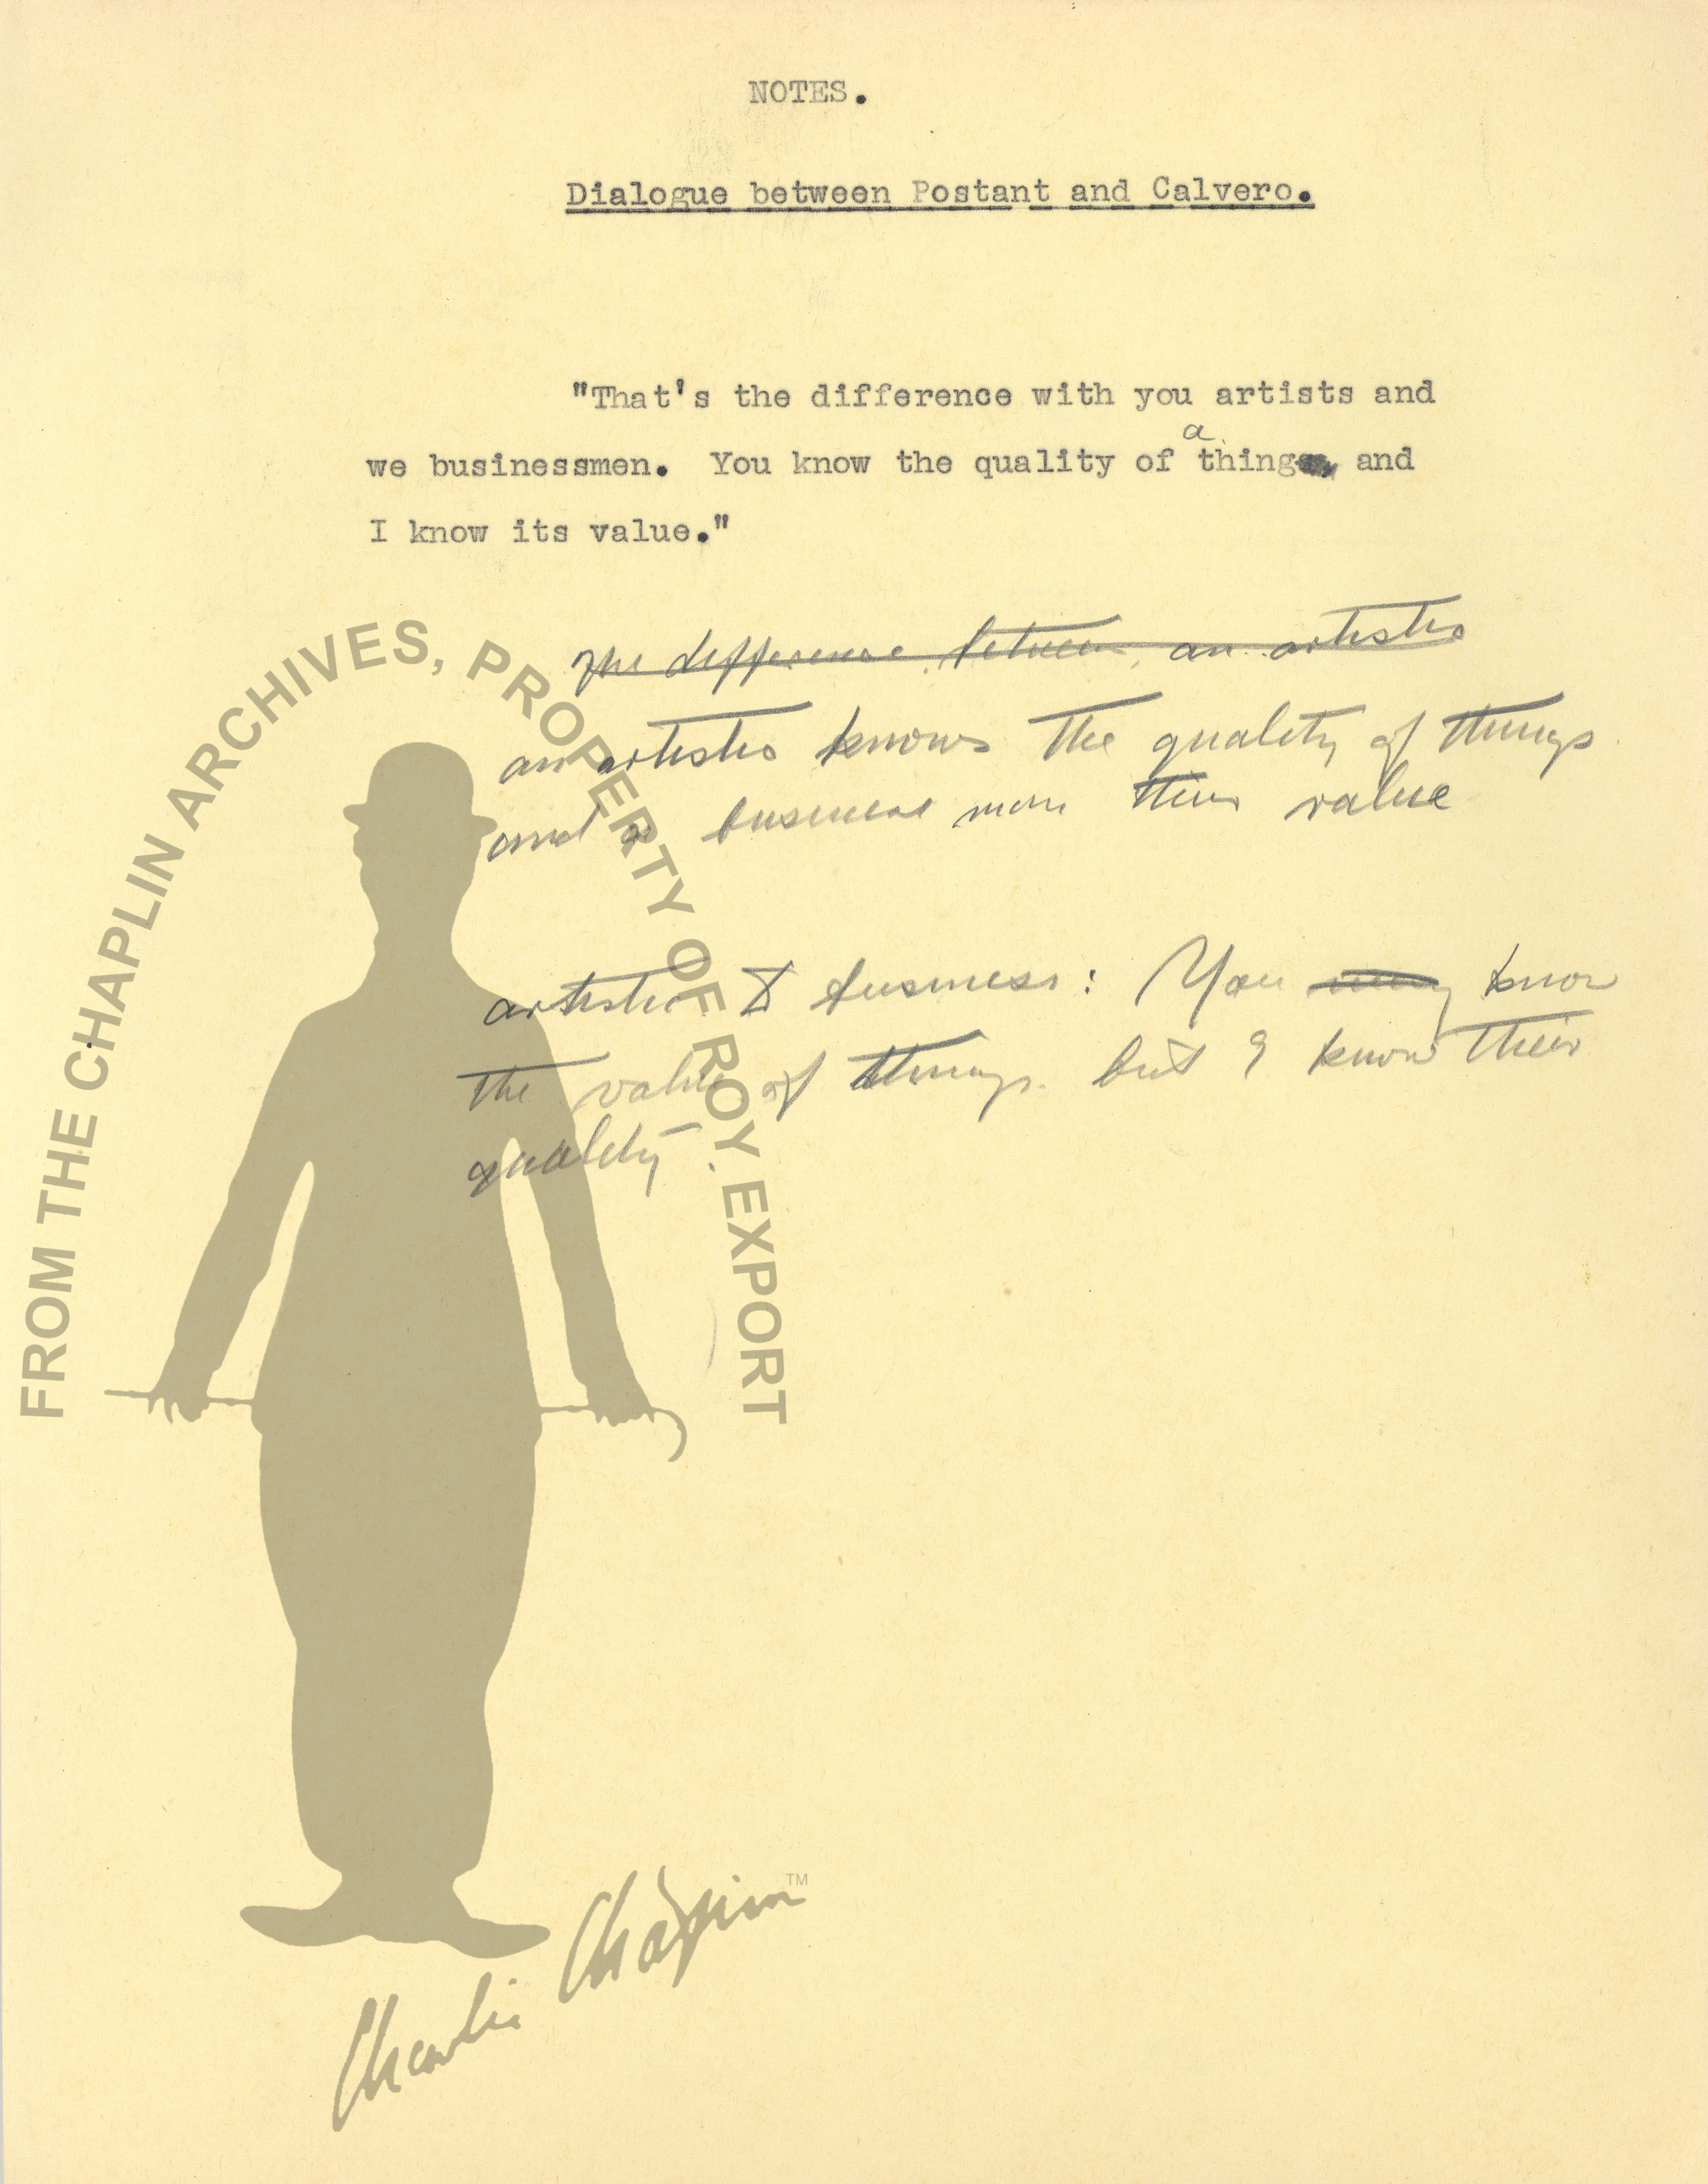 NOTES.
Dialogue between Postant and Calvero.
"That's the difference with you artists and
a
we businessmen. You know the quality of thing and
I know its value."
The difference between an artists
an artists knows the quality of things
and a business man their value
artists & business: You know
the value of things but I know their
quality.
FROM THE CHAPLIN ARCHIVES, PROPERTY OF ROY EXPORT
Charlie Chaplin TM